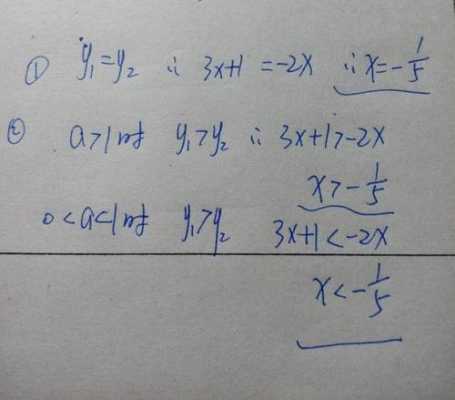 ① y₁=y₂ ∴ 3x+1=-2x ∴x=-1/5
② a>1时 y₁>y₂ ∴ 3x+1>-2x
x>-1/5
0<a<1时 y₁>y₂ 3x+1<-2x
x<-1/5